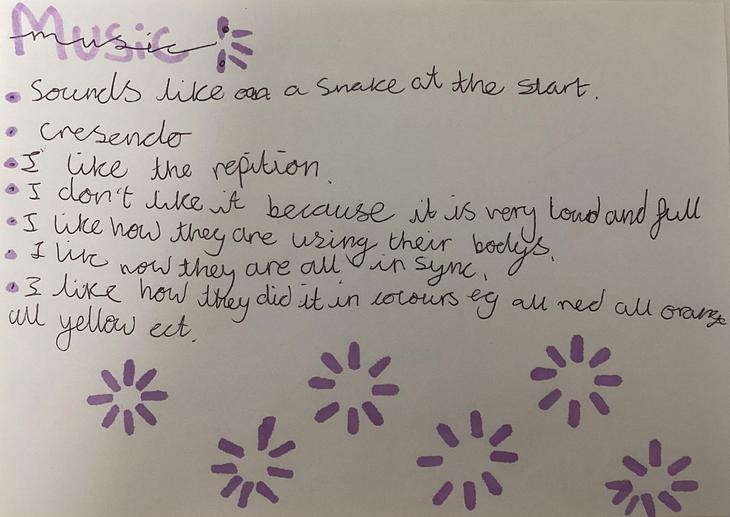 Music
music
• Sounds like a snake at the start.
• cresendo
• I like the repition.
• I don't like it because it is very loud and full
• I like how they are using their bodys.
• I like how they are all in sync.
• I like how they did it in colours eg all red all orange
all yellow ect.